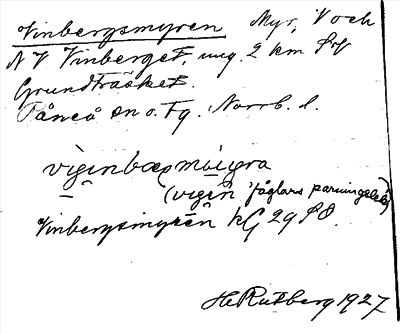 Vinbergsmyren Myr, V och
N V Vinberget, ung. 2 km SV
Grundträsket.
Råneå sn o. Tg. Norrb. l.
(vigin 'fåglars parningslek')
Vinbergsmyren kG 29 SO.
H Rutberg 1927